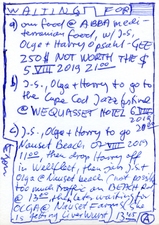 WAITINGS FOR
a) our food @ ABBA medi-
terranian food, w/ J.S,
Olga + Harvey
250$ NOT WORTH THE $
5 VIII 2019 21 00
b) J.S, Olga + Harry to go to
the Cape Cod Jazz festival
@ WEQUASSET HOTEL 6 VIII
2019
c) J.S., Olga + Harry to go
Nauset Beach 07 VIII 2019
11 00, then drop Harry off
in Wellfleet, then join
Olga @ Nauset beach / not possible
too much traffic on BEACH Rd
@ 13 00, waiting to
OLGA @ Nauset
is getting 13 45
A